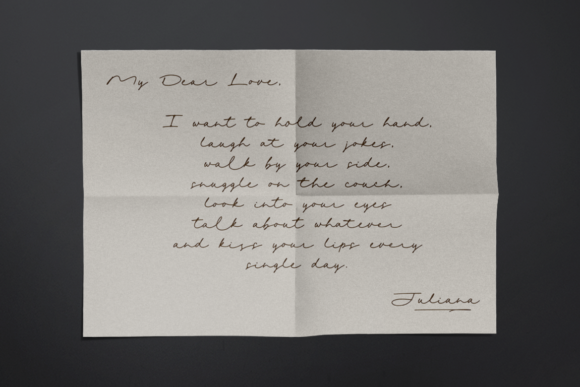 My Dear Love.
I want to hold your hand,
laugh at your jokes,
walk by your side,
snuggle on the couch,
look into your eyes
talk about whatever
and kiss your lips every
single day.
Juliana